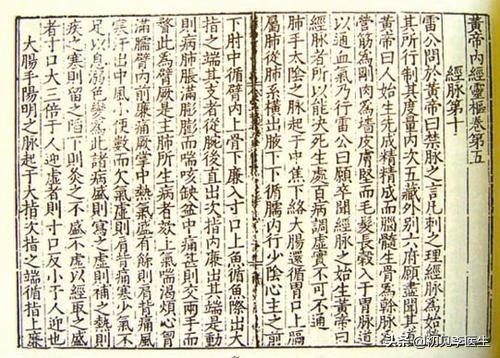 黃帝內經靈樞卷第五
經脉第十
雷公問於黃帝曰禁脉之言凡刺之理經脉為始營
其所行制其度量內次五藏外別六府願盡聞其道
黃帝曰人始生先成精精成而腦髓生骨為幹脉為
營筋為剛肉為墻皮膚堅而毛髮長穀入于胃脉道
以通血氣乃行雷公曰願卒聞經脉之始生黃帝曰
經脉者所以能决死生處百病調虛實不可不通
肺手太陰之脉起于中焦下絡大腸還循胃口上膈
屬肺從肺系橫出腋下下循臑內行少陰心主之前
下肘中循臂內上骨下廉入寸口上魚循魚際出大
指之端其支者從腕後直出次指內廉出其端是動
則病肺脹滿膨膨而喘欬缺盆中痛甚則交兩手而
瞀此為臂厥是主肺所生病者欬上氣喘渴煩心胷
滿臑臂內前廉痛厥掌中熱氣盛有餘則肩背痛風
寒汗出中風小便數而欠氣虛則肩背痛寒少氣不
足以息溺色變為此諸病盛則瀉之虛則補之熱則
疾之寒則留之陷下則灸之不盛不虛以經取之盛
者寸口大三倍于人迎虛者則寸口反小于人迎也
大腸手陽明之脉起于大指次指之端循指上廉
头条@初见李医生